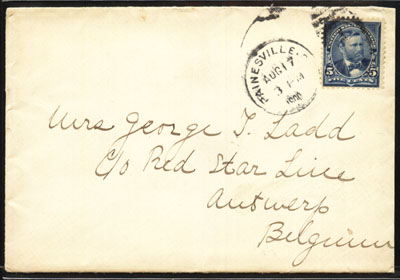 PAINESVILLE
AUG 17
3 PM
1900
5 5
Mrs George T. Ladd
C/o Red Star Line
Antwerp
Belgium